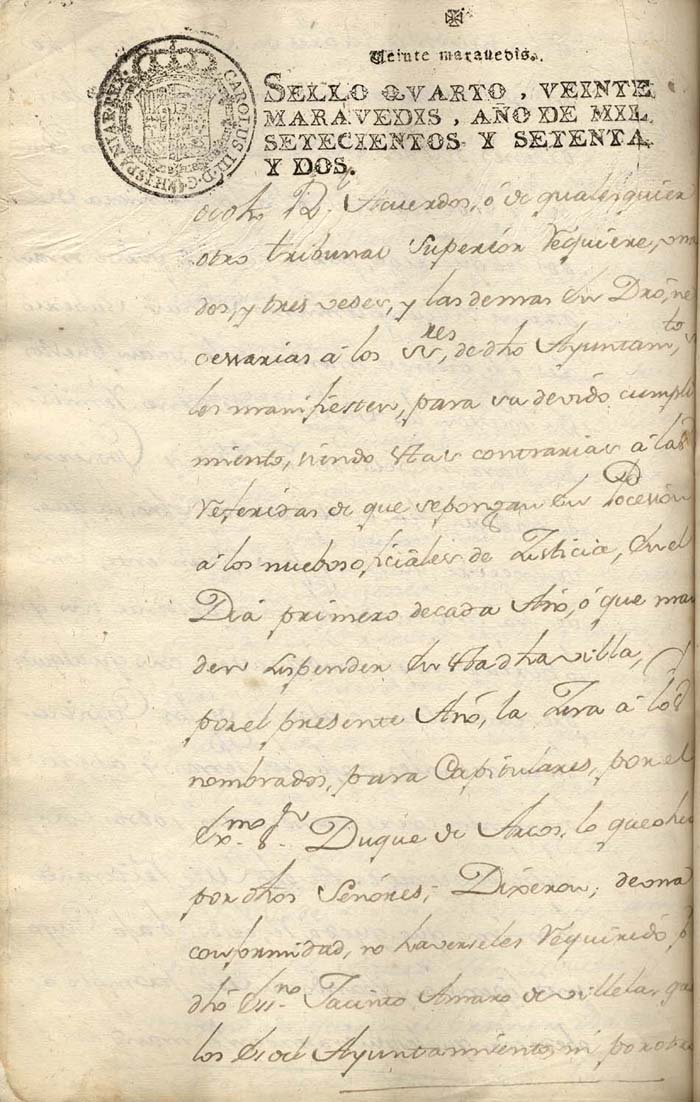 Veinte maravedis.
SELLO QVARTO, VEINTE
MARAVEDIS, AÑO DE MIL
SETECIENTOS Y SETENTA
Y DOS.
CAROLUS III. D. G. HISPANIAR. REX.
Acuerdos, ó de qualesquier
otro tribunal Superior Requiere, una
dos, y tres veses, y las demas en Dro, ne
cessarias á los Sres, de dho Ayuntamto,
les manifiesten, para su devido cumpli
miento, siendo contrarias á las
referidas de que se pongan en Pocesion
á los nuebos oficiales de Justicia, en el
Dia primero de cada Año, ó que man
den suspender en dha villa,
por el presente Año, la Jura á los
nombrados, para Capitulares, por el
Exmo Sr Duque de Arcos, lo que
por dhos Señores; Dixeron; de una
conformidad, no haverseles requirido p
dho Essno Jacinto Amaro de villela, 
los de el Ayuntamiento, ni por otra